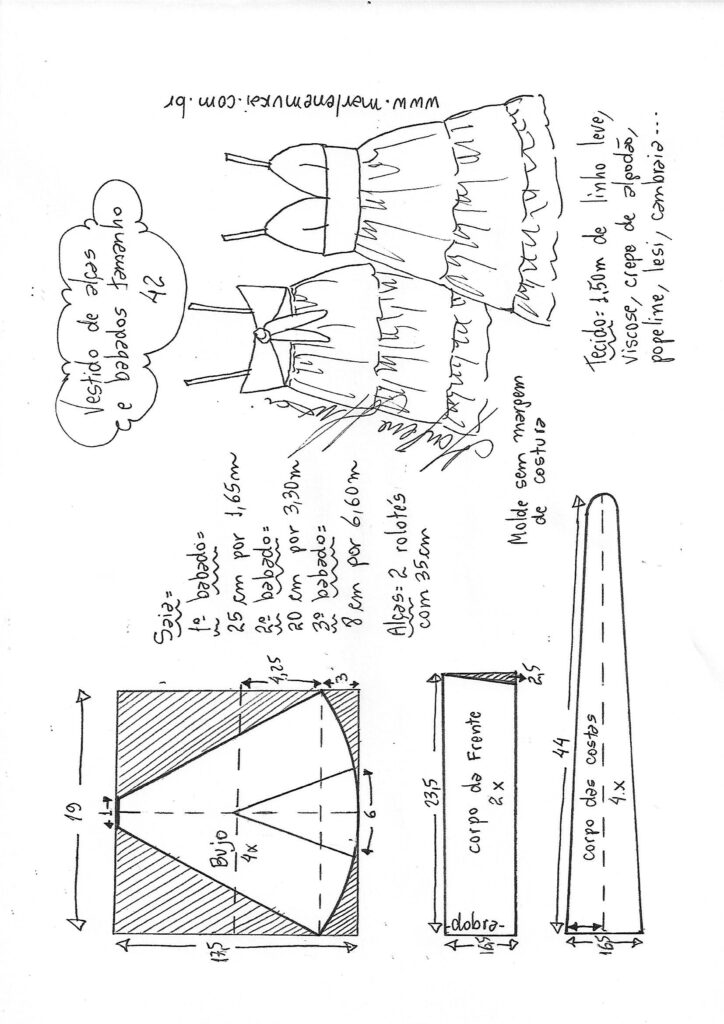 Vestido de alças
e babados tamanho
42
www.marlenemukai.com.br
Marlene
Saia=
1º babado=
25 cm por 1,65m
2º babado=
20 cm por 3,30m
3º babado=
8 cm por 6,60m
Alças= 2 rolotés
com 35cm
Molde sem margem
de costura
Tecido= 1,50m de linho leve,
viscose, crepe de algodão,
popeline, lesi, cambraia...
19
1
Bujo
4x
4,25
3
6
17,5
23,5
corpo da Frente
2x
-dobra-
6,5
2,5
44
corpo das costas
4x
6,5